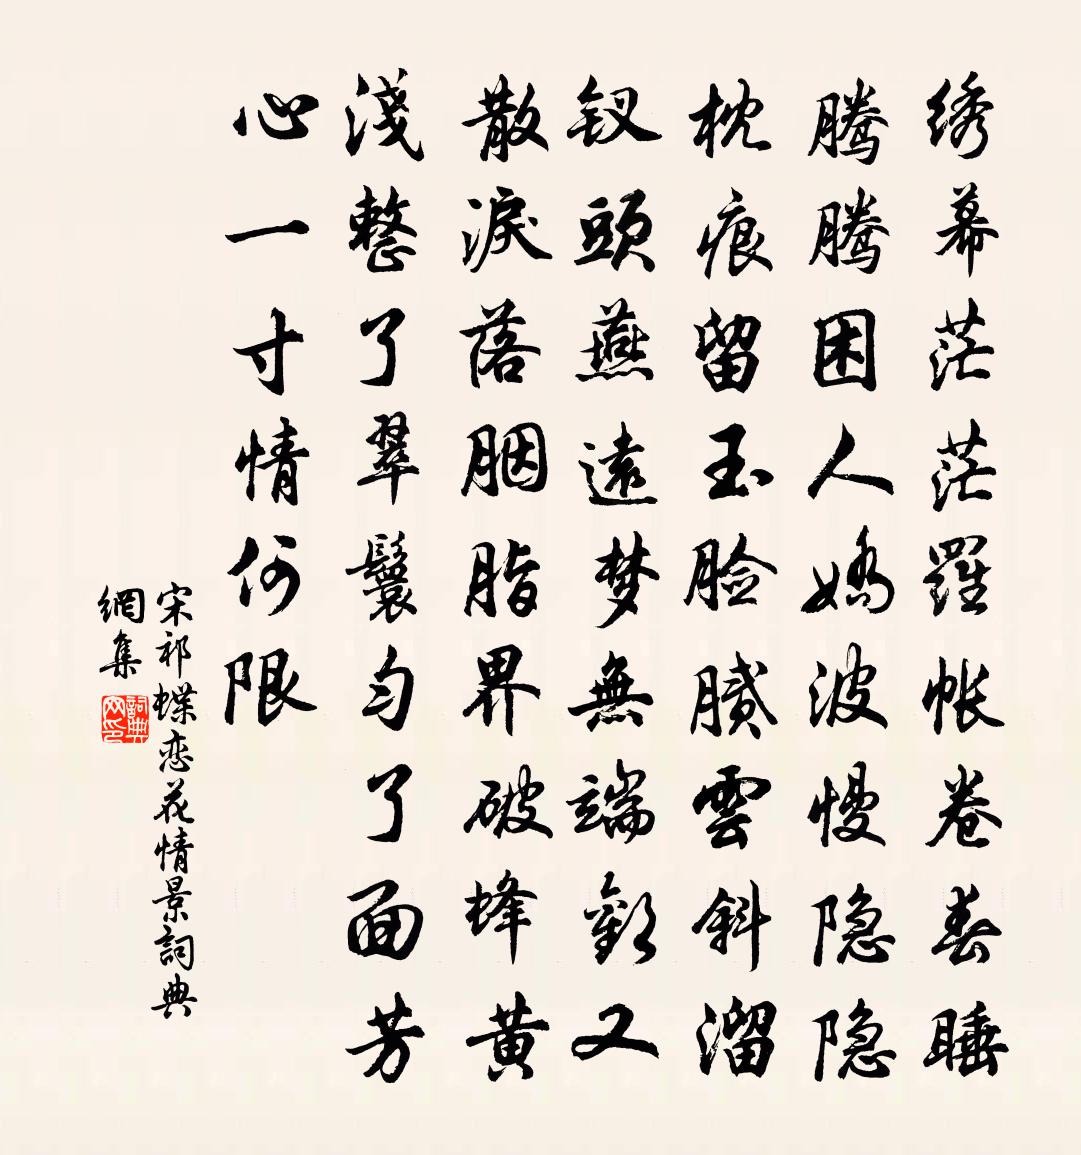 绣幕茫茫羅帐卷春睡
腾腾困人嬌波慢隐隐
枕痕留玉脸膩雲斜溜
钗頭燕遠梦無端歡又
散淚落胭脂界破蜂黄
淺整了翠鬟匀了面芳
心一寸情何限
宋祁蝶恋花情景詞典
網集
詞典
网印